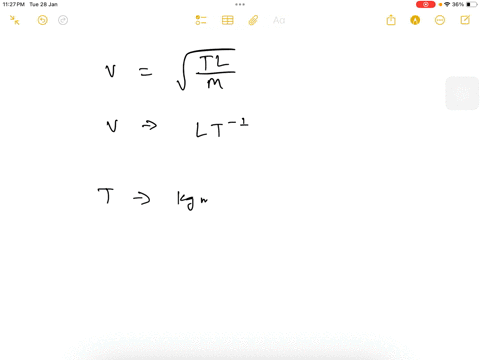 11:27 PM Tue 28 Jan
36%
Aa
V = √(TL/m)
V → LT⁻¹
T → kg m